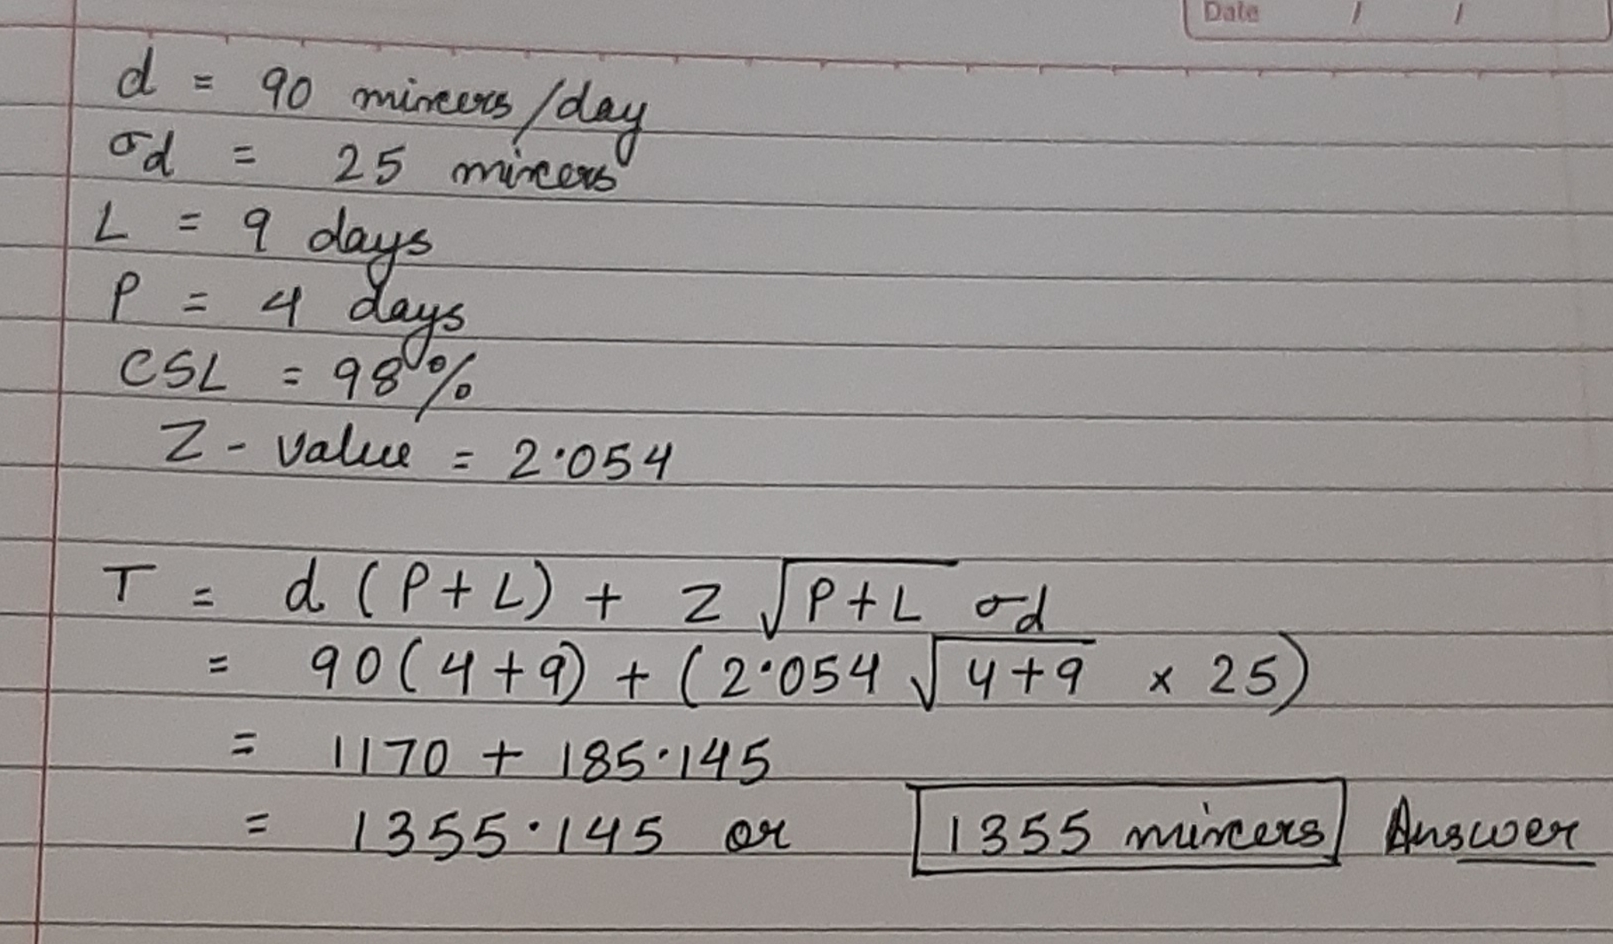 Date / /
d = 90 mincers/day
σd = 25 mincers
L = 9 days
P = 4 days
CSL = 98%
Z - value = 2.054
T = d (P+L) + Z √P+L σd
= 90(4+9) + (2.054 √4+9 × 25)
= 1170 + 185.145
= 1355.145 or 1355 mincers Answer